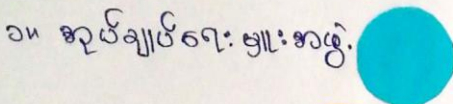 ၁။ အုပ်ချုပ်ရေးမှူးအဖွဲ့